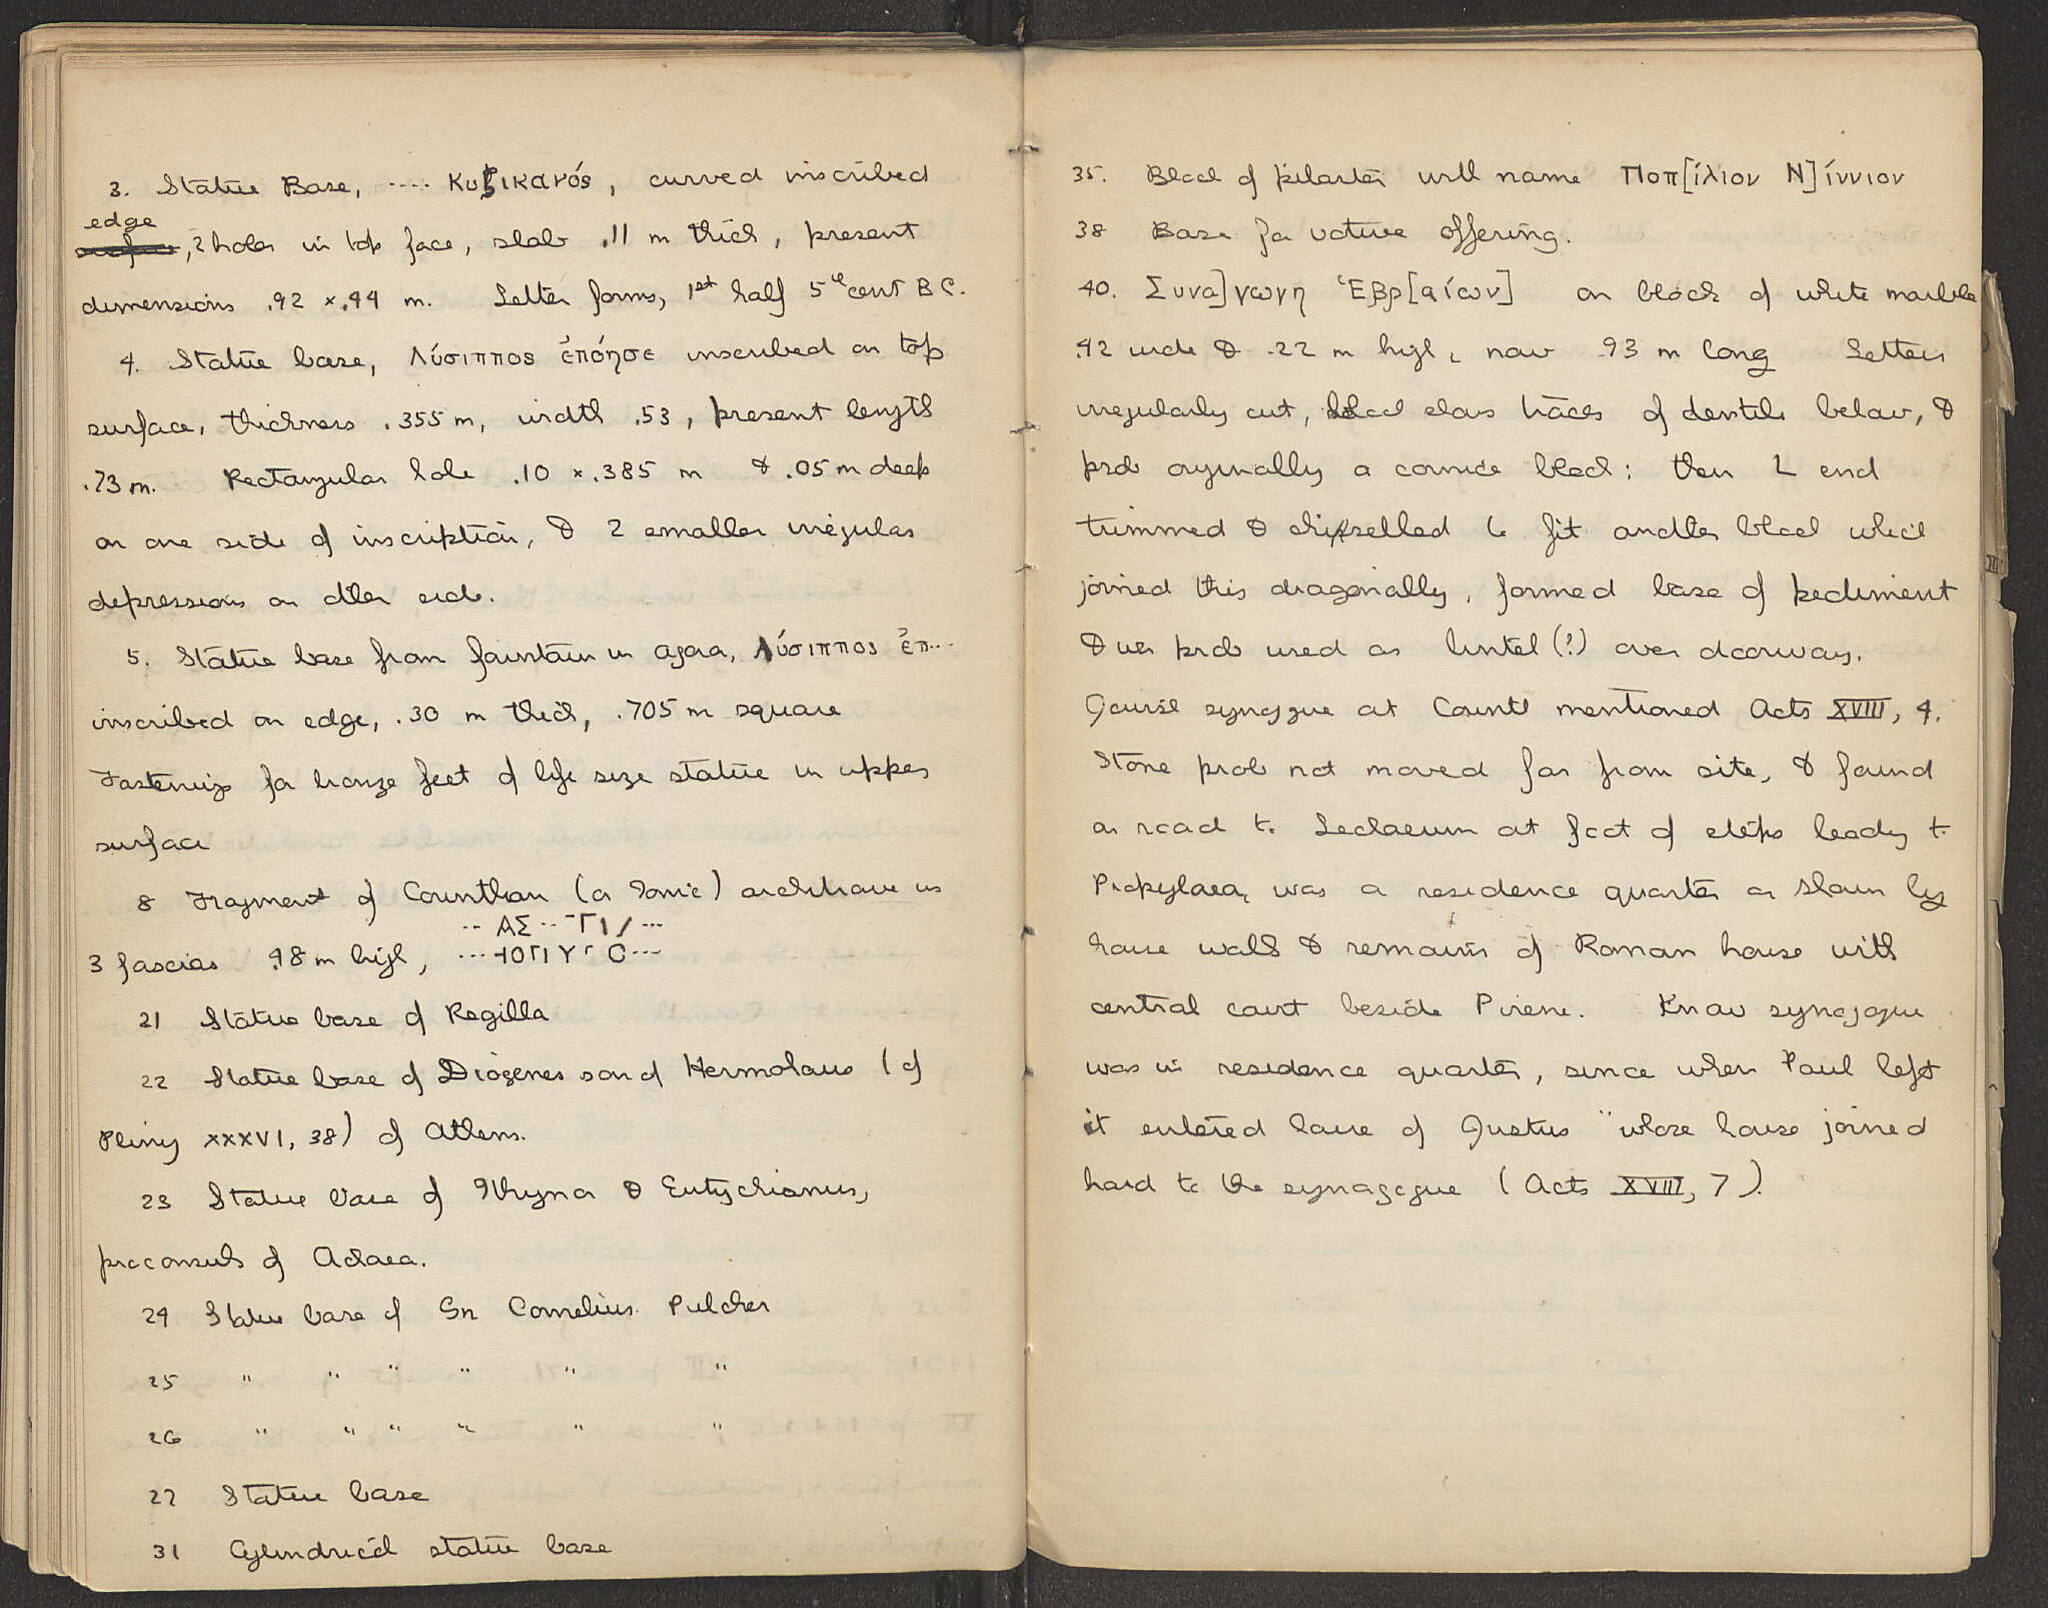 3. Statue Base, .... Κυζικανός, curved inscribed
edge
surface, 2 holes in top face, slab .11 m thick, present
dimensions .42 x .44 m. Letter forms, 1st half 5th cent B C.
4. Statue base, Λύσιππος ἐπόησε inscribed on top
surface, thickness .355 m, width .53, present length
.73 m. Rectangular hole .10 x .385 m & .05 m deep
on one side of inscription, & 2 smaller irregular
depressions on other side.
5. Statue base from fountain in agora, Λύσιππος ἐπ...
inscribed on edge, .30 m thick, .705 m square
Fastenings for bronze feet of life size statue in upper
surface
8 Fragment of Corinthian (or Ionic) architrave in
3 fascias .48 m high,
21 Statue base of Regilla
22 Statue base of Diogenes son of Hermolaus (cf
Pliny XXXVI, 38) of Athens.
23 Statue base of & Eutychianus,
proconsuls of Achaea.
24 Statue base of Gn Cornelius Pulcher
25 " " " " " "
26 " " " " " "
27 Statue base
31 Cylindrical statue base
35. Block of pilaster with name Ποπ[ίλιον Ν]ίννιον
38 Base for votive offering.
40. Συνα]γωγη Ἑβρ[αίων] on block of white marble
.42 wide & .22 m high, now .93 m long Letters
irregularly cut, block shows traces of dentils below, &
prob orginally a cornice block: then L end
trimmed & chiselled to fit another block which
joined this diagonally, formed base of pediment
& was prob used as lintel (?) over doorway.
Jewish synagogue at Corinth mentioned Acts XVIII, 4.
Stone prob not moved far from site, & found
on road to Lechaeum at foot of steps leading to
Propylaea, was a residence quarter as shown by
house walls & remains of Roman house with
central court beside Pirene. Know synagogue
was in residence quarter, since when Paul left
it entered house of Justus "whose house joined
hard to the synagogue (Acts XVIII, 7).